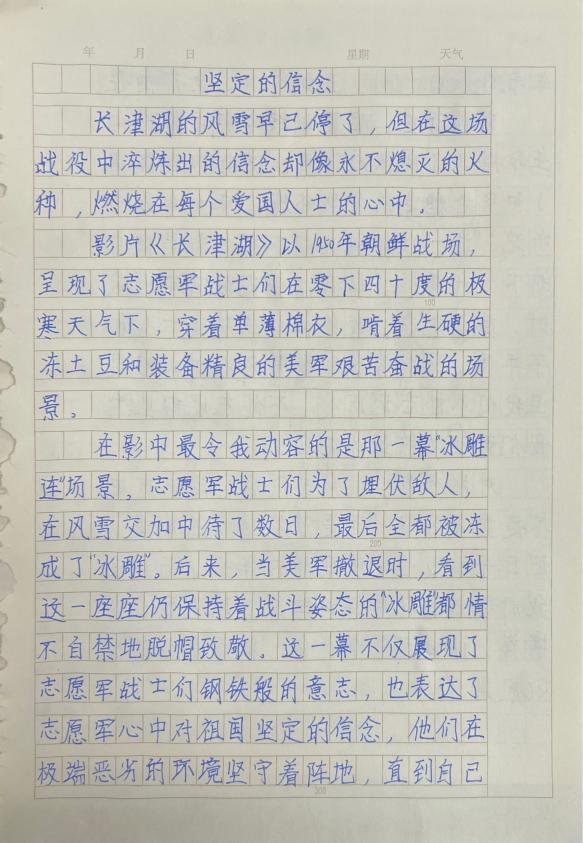 年 月 日 星期 天气
坚定的信念
长津湖的风雪早已停了，但在这场
战役中淬炼出的信念却像永不熄灭的火
种，燃烧在每个爱国人士的心中。
影片《长津湖》以1950年朝鲜战场，
呈现了志愿军战士们在零下四十度的极
100
寒天气下，穿着单薄棉衣，啃着生硬的
冻土豆和装备精良的美军艰苦奋战的场
景。
在影中最令我动容的是那一幕"冰雕
连"场景。志愿军战士们为了埋伏敌人，
在风雪交加中待了数日，最后全都被冻
200
成了"冰雕"。后来，当美军撤退时，看到
这一座座仍保持着战斗姿态的"冰雕"都情
不自禁地脱帽致敬。这一幕不仅展现了
志愿军战士们钢铁般的意志，也表达了
志愿军心中对祖国坚定的信念，他们在
极端恶劣的环境坚守着阵地，直到自己
300